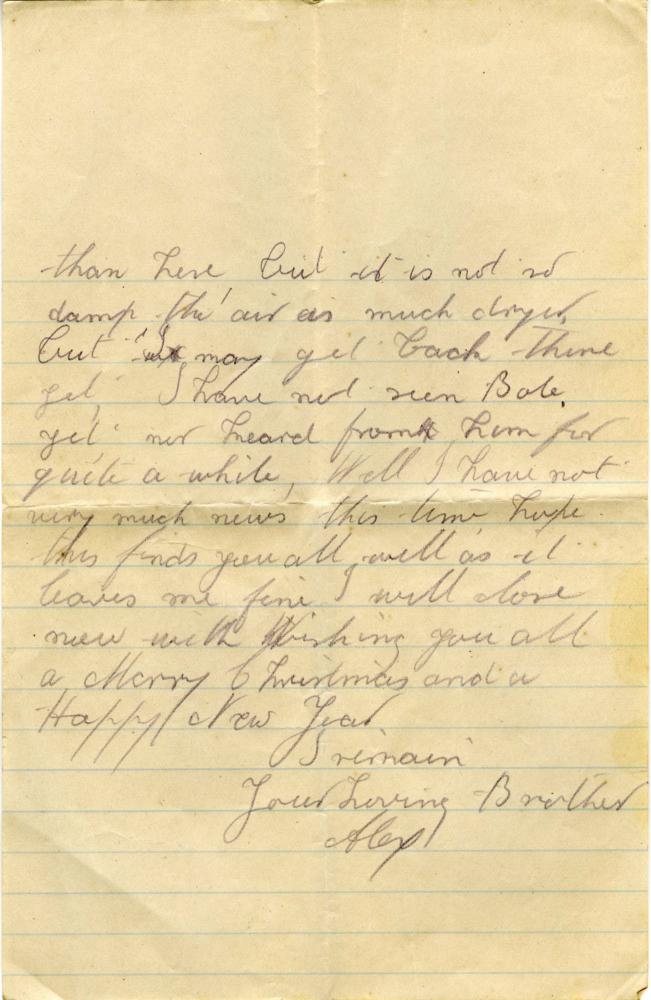 than here but it is not so
damp the air is much dryer,
but we may get back there
yet, I have not seen Bob,
yet nor heard from him for
quite a while, Well I have not
very much news this time hope
this finds you all well as it
leaves me fine I will close
now with Wishing you all
a Merry Christmas and a
Happy New Year
I remain
Your Loving Brother
Alex